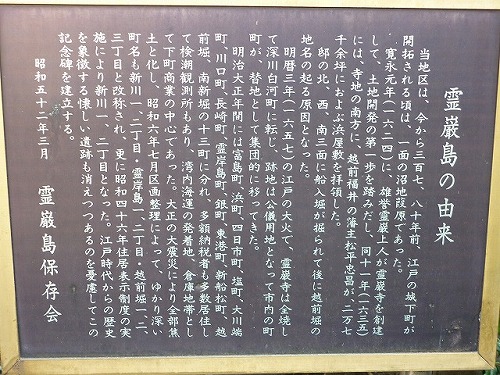 霊巌島の由来
当地区は、今から三百七、八十年前、江戸の城下町が
開拓される頃は、一面の沼地葭原であった。
寛永元年（一六二四）に、雄誉霊巌上人が霊巌寺を創建
して、土地開発の第一歩を踏みだし、同十一年（一六三五）
には、寺地の南方に、越前福井の藩主松平忠昌が、二万七
千余坪におよぶ浜屋敷を拝領した。
邸の北、西、南三面に船入堀が掘られて後に越前堀の
地名の起る原因となった。
明暦三年（一六五七）の江戸の大火で、霊巌寺は全焼し
て深川白河町に転じ、跡地は公儀用地となって市内の町
町が、替地として集団的に移ってきた。
明治大正年間には富島町、浜町、四日市町、塩町、大川端
町、川口町、長崎町、霊岸島町、銀町、東港町、新船松町、越
前堀、南新堀の十三町に分れ、多額納税者も多数居住し
て検潮観測所もあり、湾内海運の発着地、倉庫地帯とし
て下町商業の中心であった。大正の大震災により全部焦
土と化し、昭和六年七月区画整理によって、ゆかり深い
町名も新川一、二丁目・霊岸島一、二丁目・越前堀一、二、
三丁目と改称され、更に昭和四十六年住居表示制度の実
施により新川一、二丁目となった。江戸時代からの歴史
を象徴する懐しい遺跡も消えつつあるのを憂慮してこの
記念碑を建立する。
昭和五十二年三月
霊巌島保存会